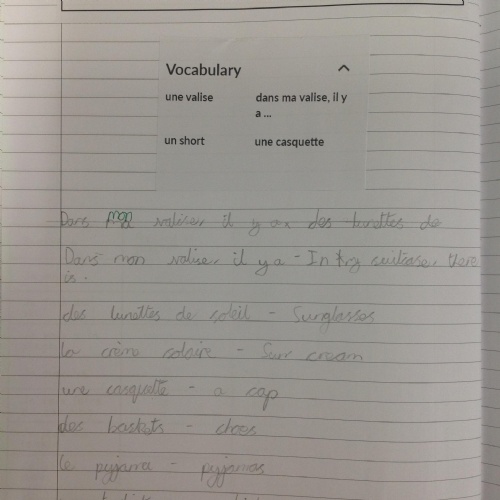 Vocabulary
une valise dans ma valise, il y
a ...
un short une casquette
Dans mon valise, il y a des lunettes de
Dans mon valise, il y a - In my suitcase, there
is.
des lunettes de soleil - Sunglasses
la crème solaire - Sun cream
une casquette - a cap
des baskets -
le pyjama - pyjamas